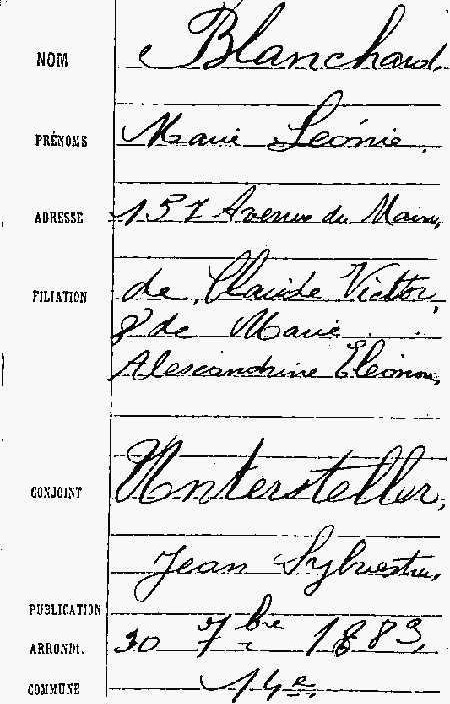 NOM Blanchard,
PRÉNOMS Marie Léonie,
ADRESSE 157 Avenue du Maine,
FILIATION de Claude Victor,
& de Marie
Alexandrine Eléonore,
CONJOINT Untersteller,
Jean Sylvestre,
PUBLICATION
ARRONDt. 30 7bre 1883,
COMMUNE 14e,